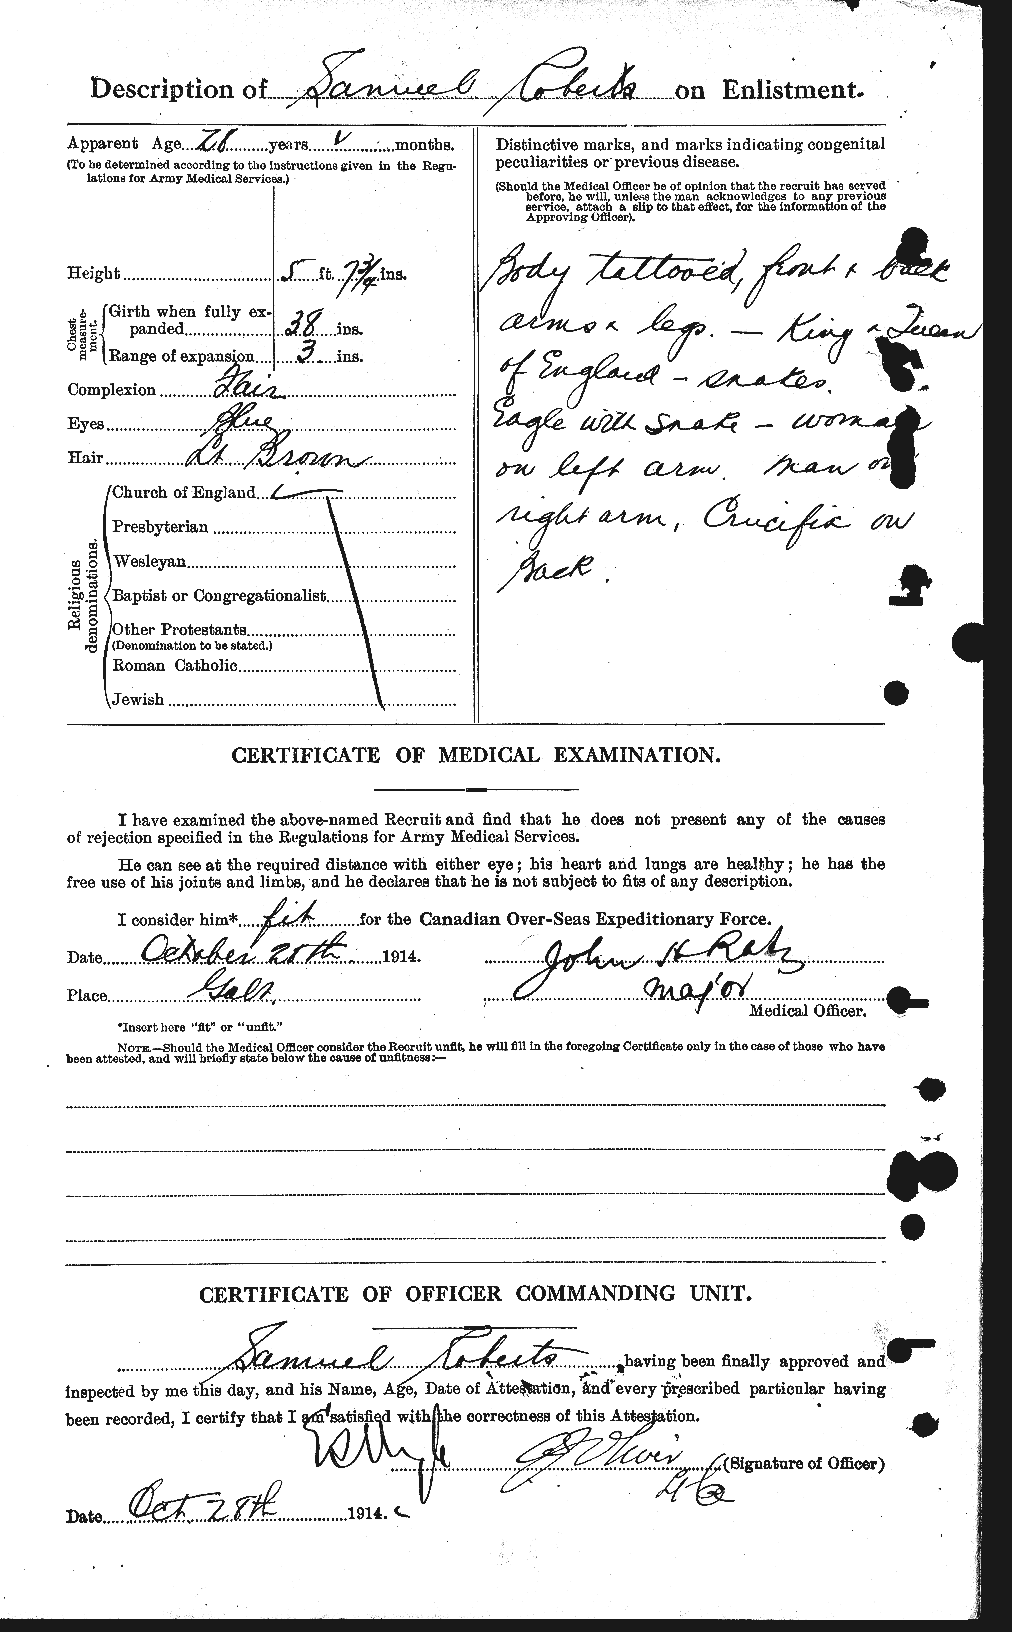 Description of Samuel Roberts on Enlistment.
Apparent Age 28 years months.
(To be determined according to the instructions given in the Regu-
lations for Army Medical Services.)
Height 5 ft. 7 3/4 ins.
Chest measure-ment.
Girth when fully ex-
panded 38 ins.
Range of expansion 3 ins.
Complexion Fair
Eyes Blue
Hair Lt Brown
Religious denominations.
Church of England
Presbyterian
Wesleyan
Baptist or Congregationalist
Other Protestants
(Denomination to be stated.)
Roman Catholic
Jewish
Distinctive marks, and marks indicating congenital
peculiarities or previous disease.
(Should the Medical Officer be of opinion that the recruit has served
before, he will, unless the man acknowledges to any previous
service, attach a slip to that effect, for the information of the
Approving Officer).
Body tattooed, front & back
arms & legs. – King & Queen
of England – snakes.
Eagle with snake – woman
on left arm. Man on
right arm, Crucifix on
Back.
CERTIFICATE OF MEDICAL EXAMINATION.
I have examined the above-named Recruit and find that he does not present any of the causes
of rejection specified in the Regulations for Army Medical Services.
He can see at the required distance with either eye; his heart and lungs are healthy; he has the
free use of his joints and limbs, and he declares that he is not subject to fits of any description.
I consider him* fit for the Canadian Over-Seas Expeditionary Force.
Date October 28th 1914.
John H Ratz
Place Galt.
Major
Medical Officer.
*Insert here "fit" or "unfit."
NOTE.—Should the Medical Officer consider the Recruit unfit, he will fill in the foregoing Certificate only in the case of those who have
been attested, and will briefly state below the cause of unfitness:—
CERTIFICATE OF OFFICER COMMANDING UNIT.
Samuel Roberts, having been finally approved and
inspected by me this day, and his Name, Age, Date of Attestation, and every prescribed particular having
been recorded, I certify that I am satisfied with the correctness of this Attestation.
(Signature of Officer)
Date Oct 28th 1914.